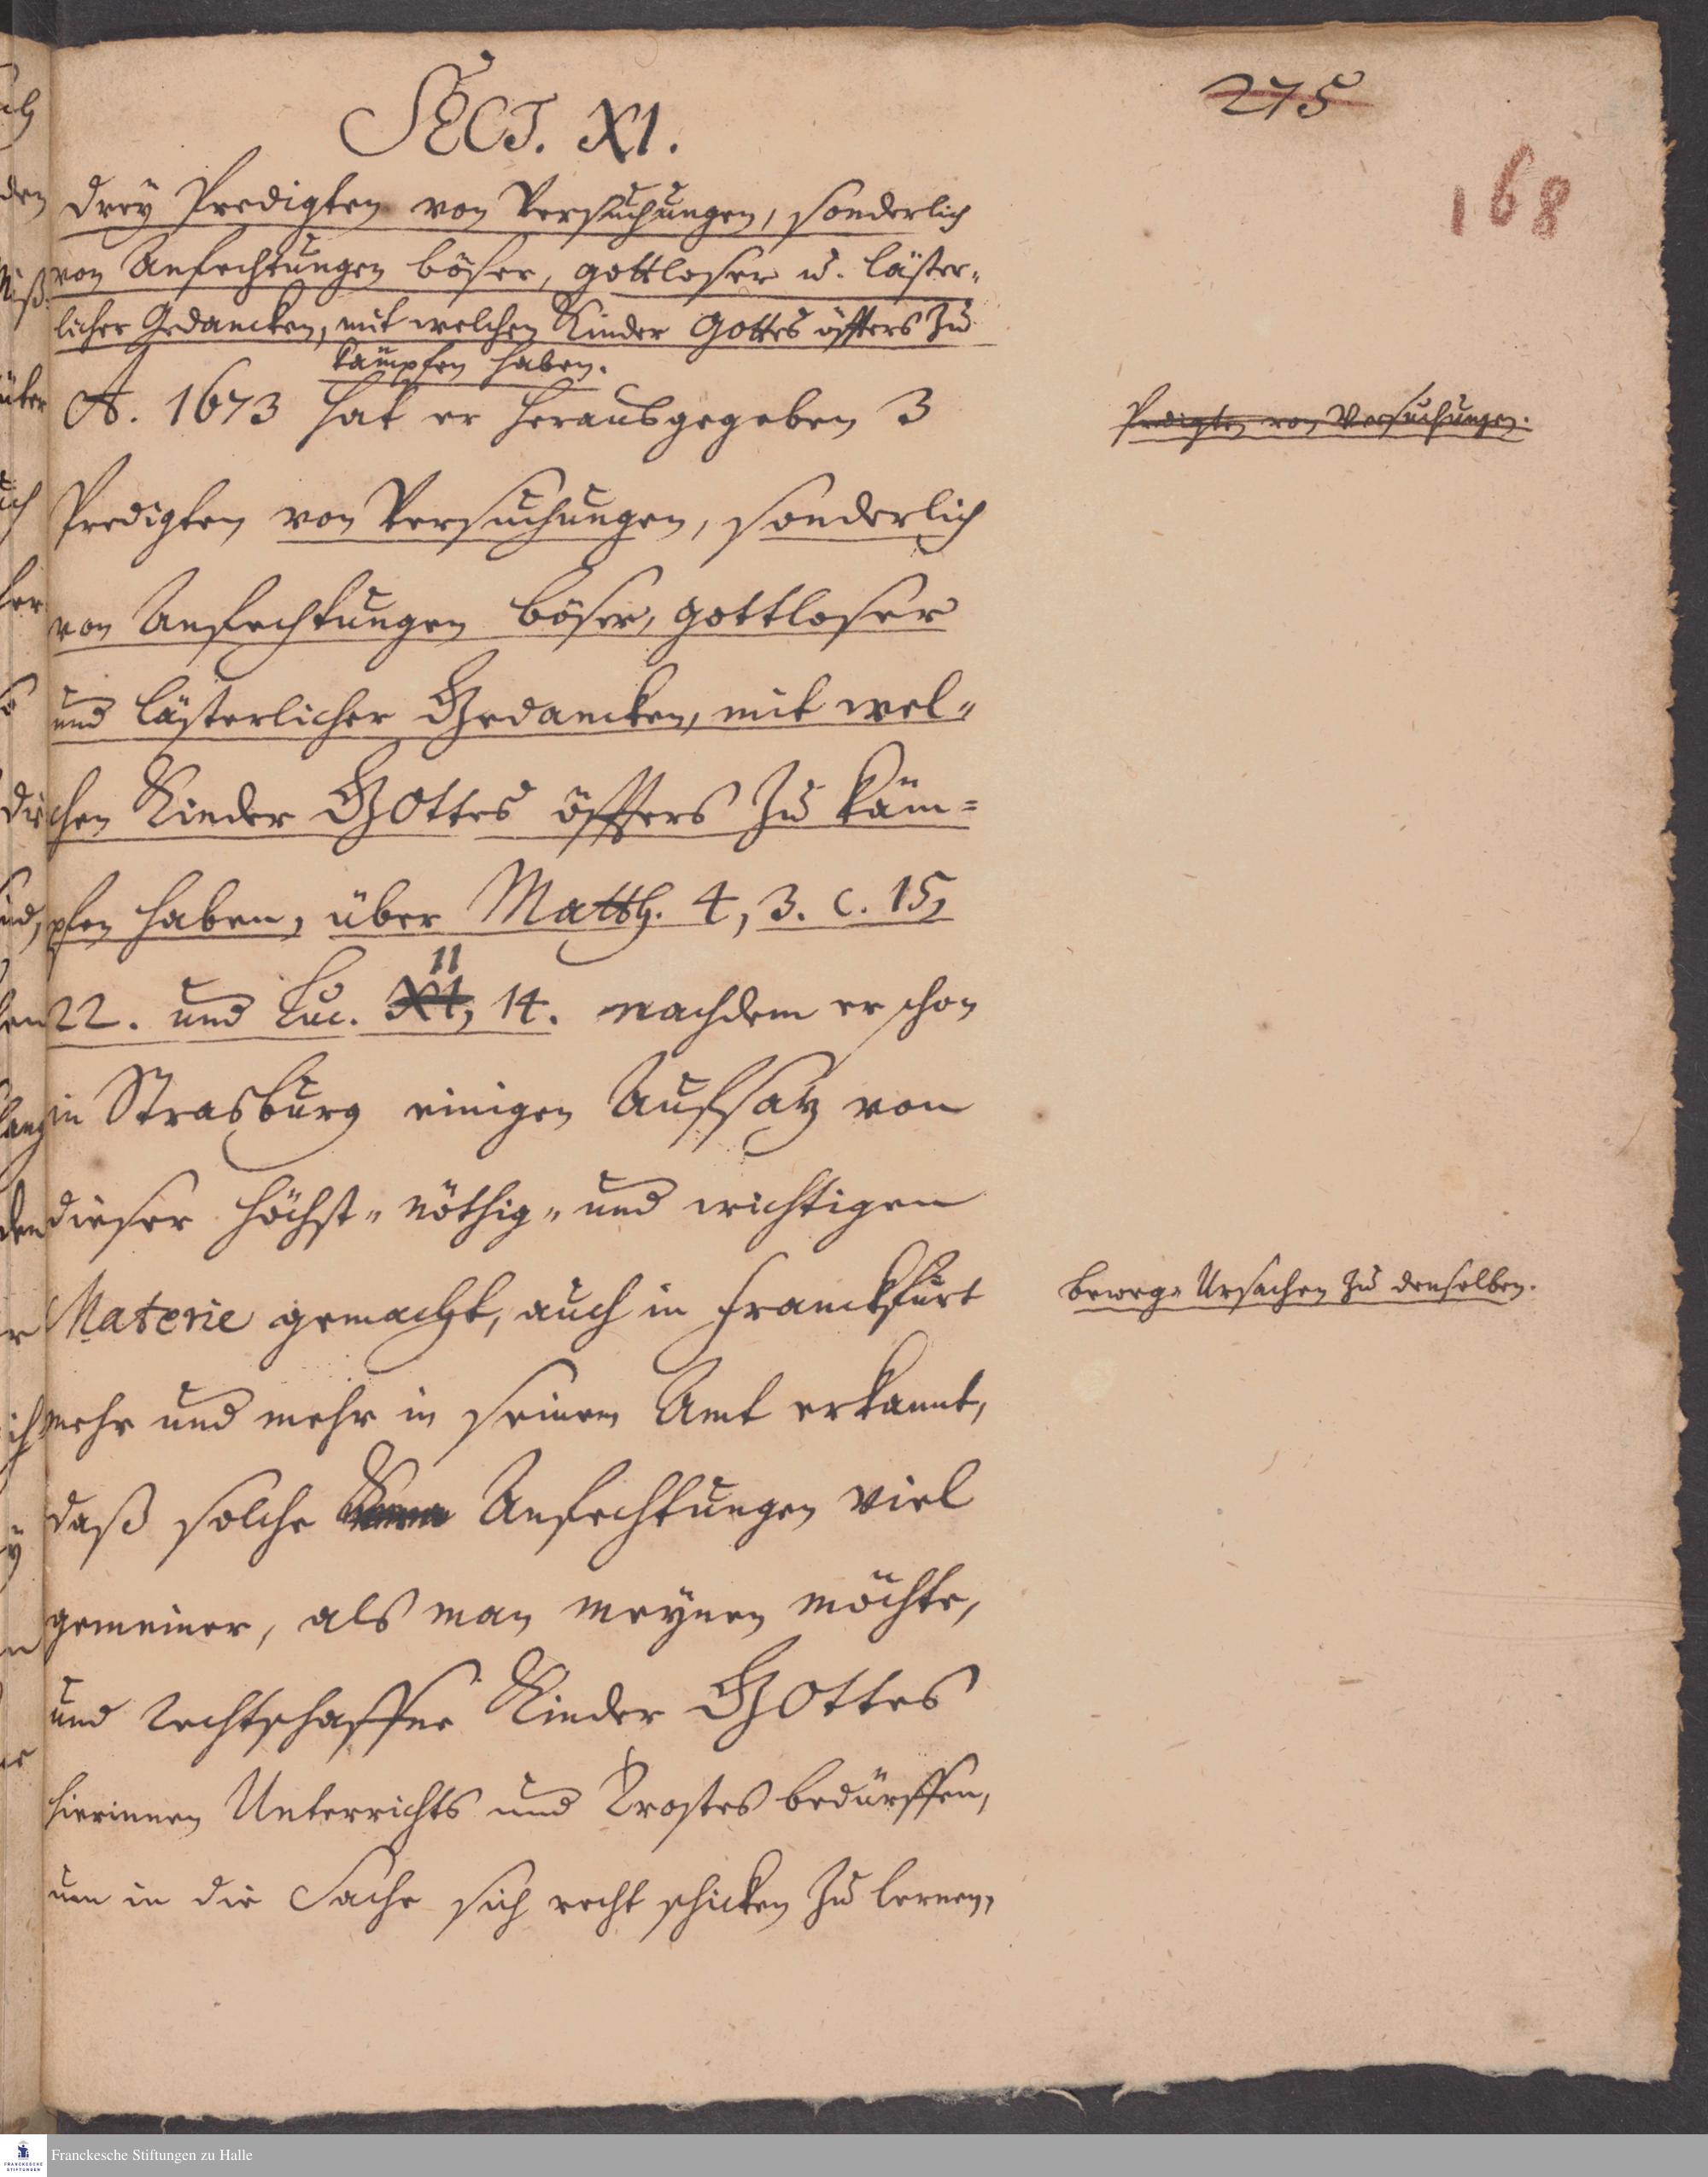 275
168
SECT. XI.
Drey Predigten von Versuchungen, sonderlich
von Anfechtungen böser, gottloser u. läster-
licher Gedancken, mit welchen Kinder Gottes öffters zu
kämpfen haben.
A. 1673 hat er herausgegeben 3
Predigten von Versuchungen.
Predigten von Versuchungen, sonderlich
von Anfechtungen böser, gottloser
und lästerlicher Gedancken, mit wel-
chen Kinder GOttes öffters zu käm-
pfen haben, über Matth. 4, 3. c. 15,
22. und Luc. XI, 11 14. nachdem er schon
in Strasburg einigen Aufsatz von
dieser höchst-nöthig-und wichtigen
Materie gemacht, auch in Franckfurt
Beweg-Ursachen zu denselben.
mehr und mehr in seinem Amt erkannt,
daß solche Anfechtungen viel
gemeiner, als man meynen möchte,
und rechtschaffne Kinder GOttes
hierinnen Unterrichts und Trostes bedürffen,
um in die Sache sich recht schicken zu lernen,
Franckesche Stiftungen zu Halle
FRANCKESCHE
STIFTUNGEN